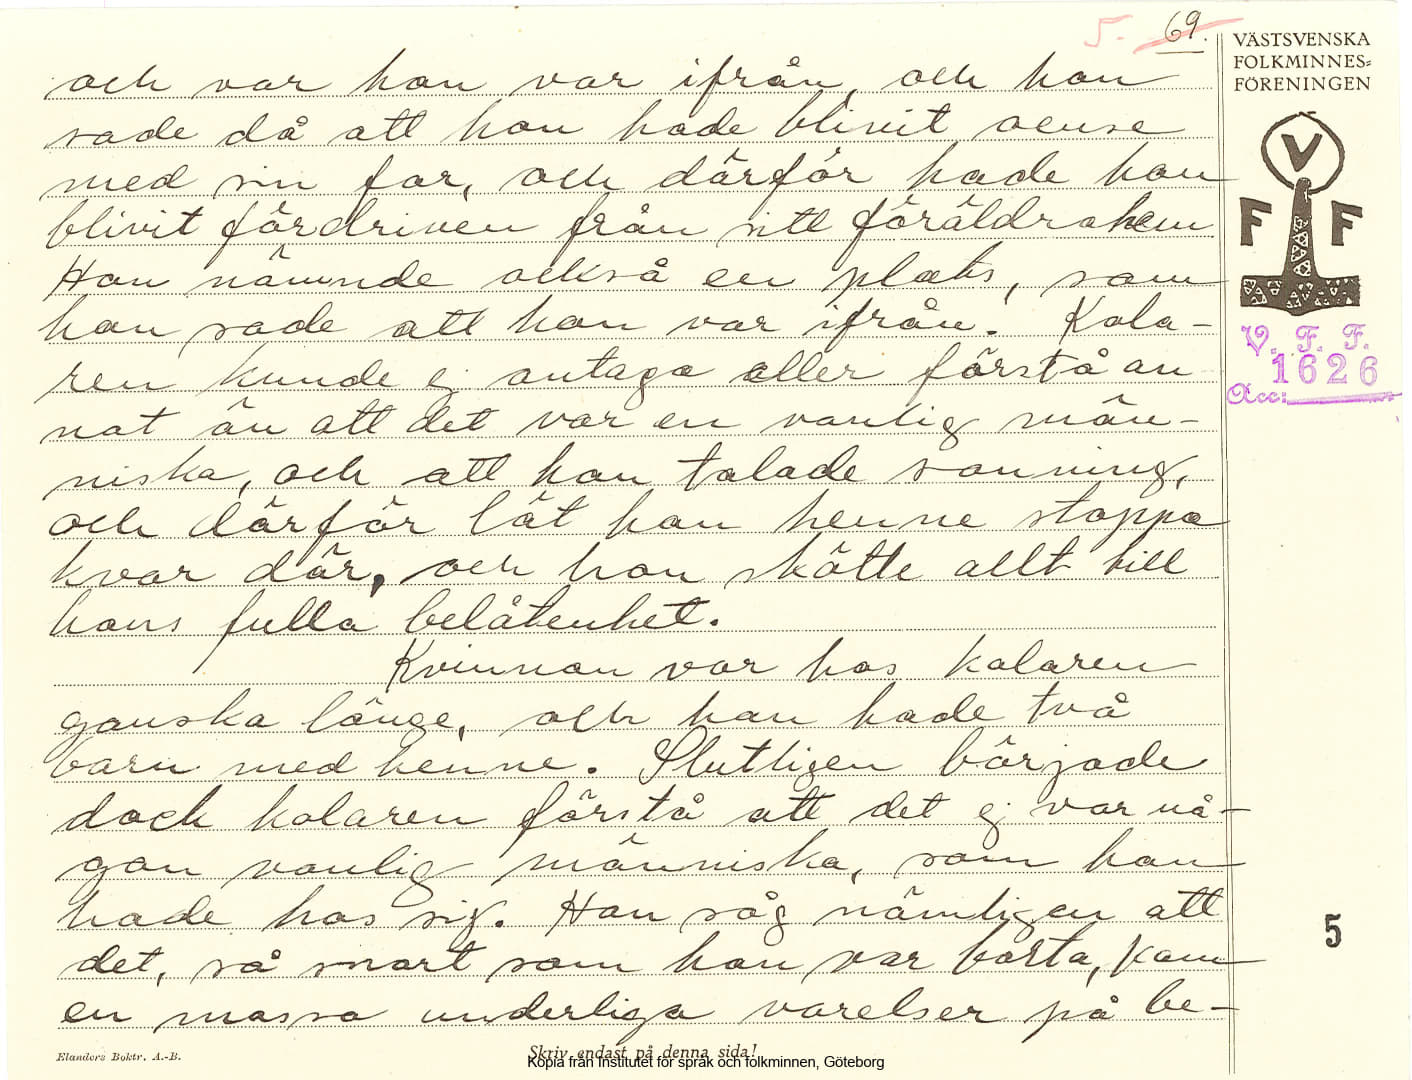 5. 69.
VÄSTSVENSKA
FOLKMINNES=
FÖRENINGEN
V
F F
V. F. F.
1626
Acc:
och var hon var ifrån, och hon
sade då att hon hade blivit oense
med sin far, och därför hade hon
blivit fördriven från sitt föräldrahem
Hon nämnde också en plats, som
hon sade att hon var ifrån. Kola-
ren kunde ej antaga eller förstå an
nat än att det var en vanlig män-
niska, och att hon talade sanning,
och därför lät han henne stoppa
kvar där, och hon skötte allt till
hans fulla belåtenhet.
Kvinnan var hos kolaren
ganska länge, och han hade två
barn med henne. Slutligen började
dock kolaren förstå att det ej var nå-
gon vanlig människa, som han
hade hos sig. Han såg nämligen att
det, så snart som han var borta, kom
en massa underliga varelser på be-
5
Elanders Boktr. A.-B.
Skriv endast på denna sida!
Kopia från Institutet för språk och folkminnen, Göteborg